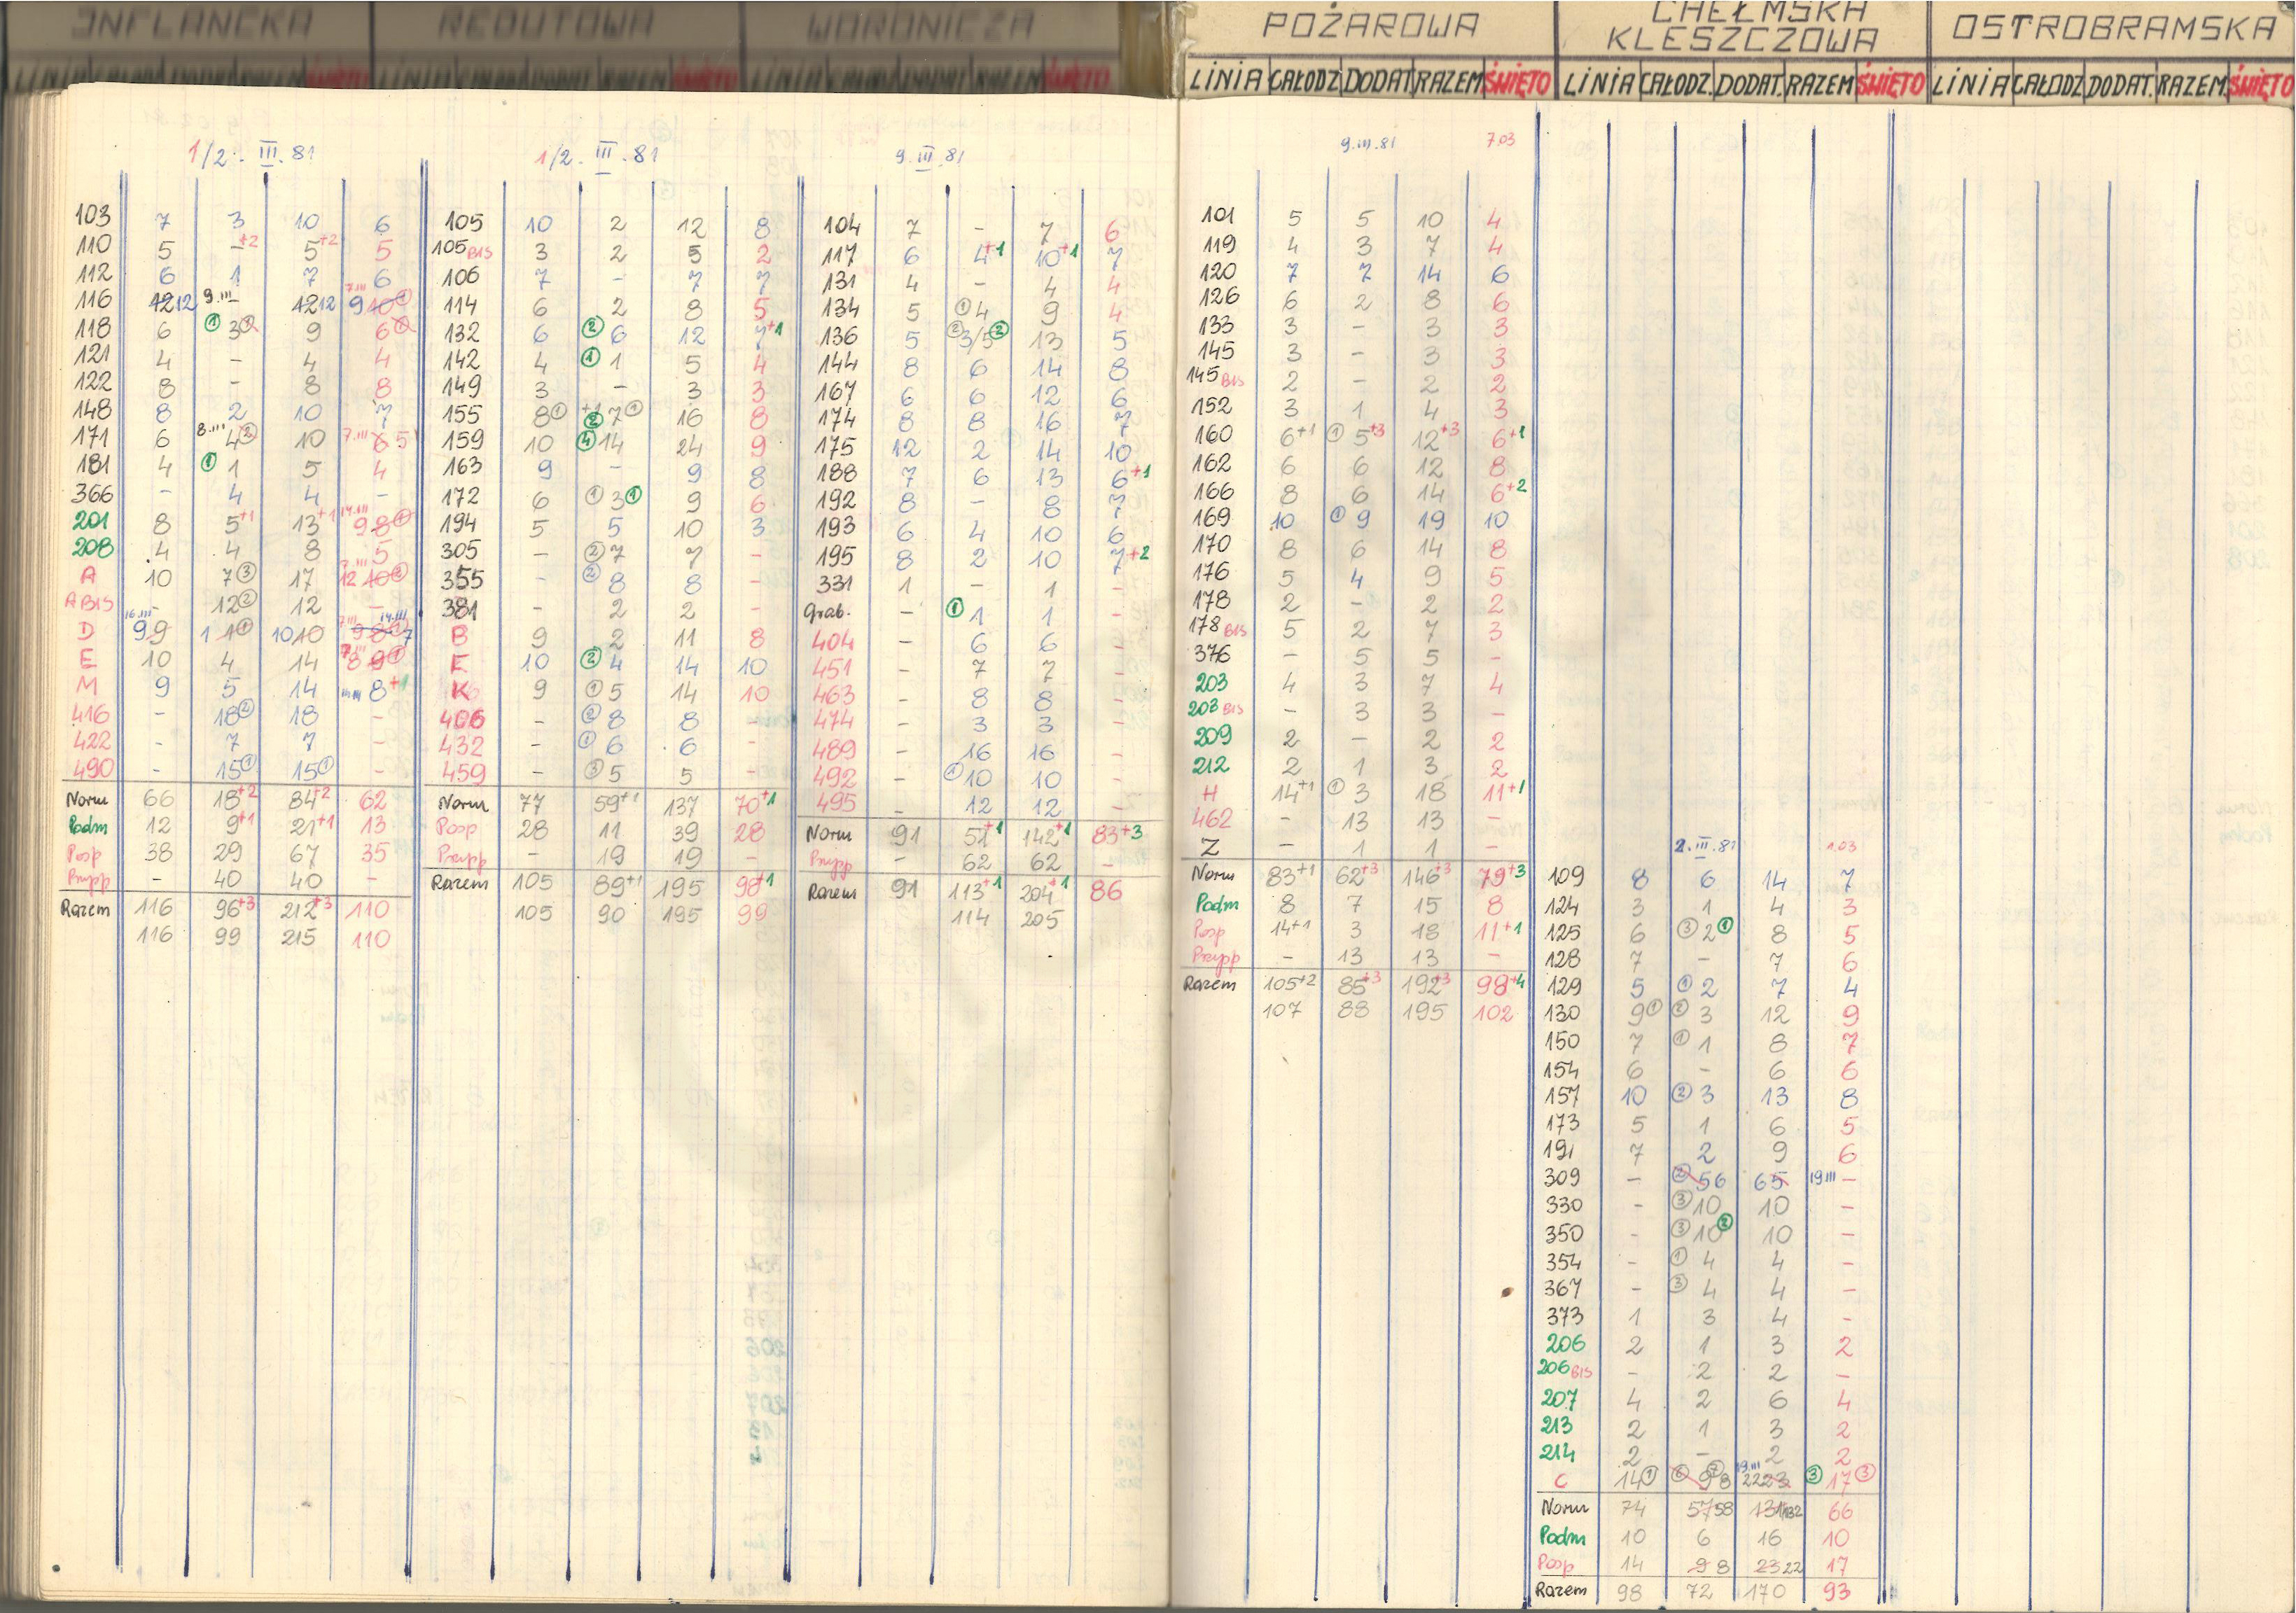 INFLANCKA REDUTOWA WORONICZA POŻAROWA CHEŁMSKA KLESZCZOWA OSTROBRAMSKA
LINIA CAŁODZ DODAT RAZEM ŚWIĘTO LINIA CAŁODZ. DODAT. RAZEM ŚWIĘTO LINIA CAŁODZ DODAT. RAZEM. ŚWIĘTO
1/2. III. 81
103 7 3 10 6
110 5 -+2 5+2 5
112 6 1 7 6
116 12 12 9.III - 12 12 7.III 9 10 ①
118 6 ① 3 ① 9 6 ①
121 4 - 4 4
122 8 - 8 8
148 8 2 10 7
171 6 8.III 4 ② 10 7.III 6 5
181 4 ① 1 5 4
366 - 4 4 -
201 8 5+1 13+1 14.III 9 8 ①
208 4 4 8 5
A 10 7 ③ 17 7.III 12 10
A BIS - 12 ② 12 -
D 16.III 9 9 1 1 ① 10 10 7.III 9 8 14.III 7
E 10 4 14 7.III 8 9 ①
M 9 5 14 8+1
416 - 18 ② 18 -
422 - 7 7 -
490 - 15 ① 15 ① -
Norm 66 18+2 84+2 62
Podm 12 9+1 21+1 13
Posp 38 29 67 35
Przysp - 40 40 -
Razem 116 96+3 212+3 110
116 99 215 110
1/2. III. 81
105 10 2 12 8
105 BIS 3 2 5 2
106 7 - 7 7
114 6 2 8 5
132 6 ② 6 12 7+1
142 4 ① 1 5 4
149 3 - 3 3
155 8 ① +1 ② 7 ① 16 8
159 10 ④ 14 24 9
163 9 - 9 8
172 6 ① 3 ① 9 6
194 5 5 10 3
305 - ② 7 7 -
355 - ② 8 8 -
381 - 2 2 -
B 9 2 11 8
F 10 ② 4 14 10
K 9 ① 5 14 10
406 - ② 8 8 -
432 - ① 6 6 -
459 - ③ 5 5 -
Norm 77 59+1 137 70+1
Posp 28 11 39 28
Przysp - 19 19 -
Razem 105 89+1 195 98+1
105 90 195 99
9. III. 81
104 7 - 7 6
117 6 4+1 10+1 7
131 4 - 4 4
134 5 ① 4 9 4
136 5 ② 3/5 ② 13 5
144 8 6 14 8
167 6 6 12 6
174 8 8 16 7
175 12 2 14 10
188 7 6 13 6+1
192 8 - 8 7
193 6 4 10 6
195 8 2 10 7+2
331 1 - 1 -
Grab. - ① 1 1 -
404 - 6 6 -
451 - 7 7 -
463 - 8 8 -
474 - 3 3 -
489 - 16 16 -
492 - ① 10 10 -
495 - 12 12 -
Norm 91 51+1 142+1 83+3
Przysp - 62 62 -
Razem 91 113+1 204+1 86
114 205
9.III.81 7.03
101 5 5 10 4
119 4 3 7 4
120 7 7 14 6
126 6 2 8 6
133 3 - 3 3
145 3 - 3 3
145 BIS 2 - 2 2
152 3 1 4 3
160 6+1 ① 5+3 12+3 6+1
162 6 6 12 8
166 8 6 14 6+2
169 10 ① 9 19 10
170 8 6 14 8
176 5 4 9 5
178 2 - 2 2
178 BIS 5 2 7 3
376 - 5 5 -
203 4 3 7 4
203 BIS - 3 3 -
209 2 - 2 2
212 2 1 3 2
H 14+1 ① 3 18 11+1
462 - 13 13 -
Z - 1 1 -
Norm 83+1 62+3 146+3 79+3
Podm 8 7 15 8
Posp 14+1 3 18 11+1
Przysp - 13 13 -
Razem 105+2 85+3 192+3 98+4
107 88 195 102
2.III.81 1.03
109 8 6 14 7
124 3 1 4 3
125 6 ③ 2 ① 8 5
128 7 - 7 6
129 5 ① 2 7 4
130 9 ① ② 3 12 9
150 7 ① 1 8 7
154 6 - 6 6
157 10 ② 3 13 8
173 5 1 6 5
191 7 2 9 6
309 - ② 5 6 6 5 19.III -
330 - ③ 10 10 -
350 - ③ 10 ② 10 -
354 - ① 4 4 -
367 - ③ 4 4 -
373 1 3 4 -
206 2 1 3 2
206 BIS - 2 2 -
207 4 2 6 4
213 2 1 3 2
214 2 - 2 2
C 14 ① ⑥ 9 ⑦ 8 19.III 22 23 ③ 17 ③
Norm 74 57 58 131 132 66
Podm 10 6 16 10
Posp 14 9 8 23 22 17
Razem 98 72 170 93